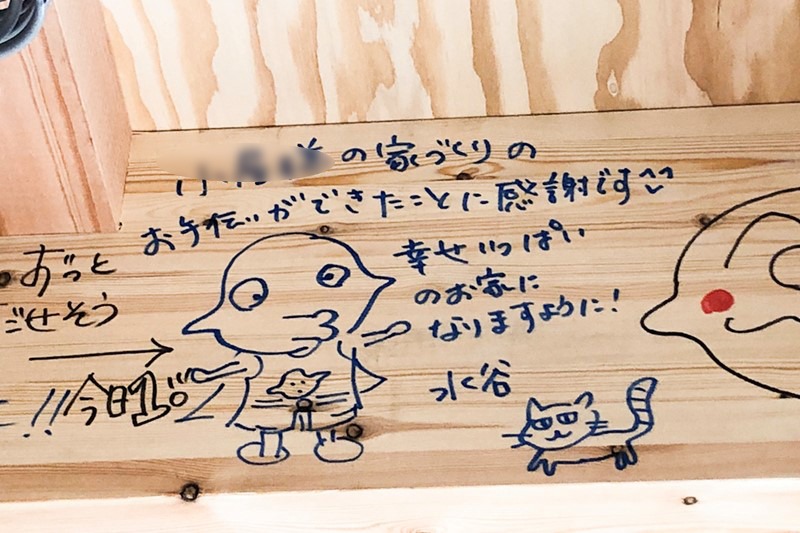 の家づくりの
お手伝いができたことに感謝です^^
幸せいっぱい
のお家に
なりますように!
水谷
ずっと
ごせそう
!!今日も